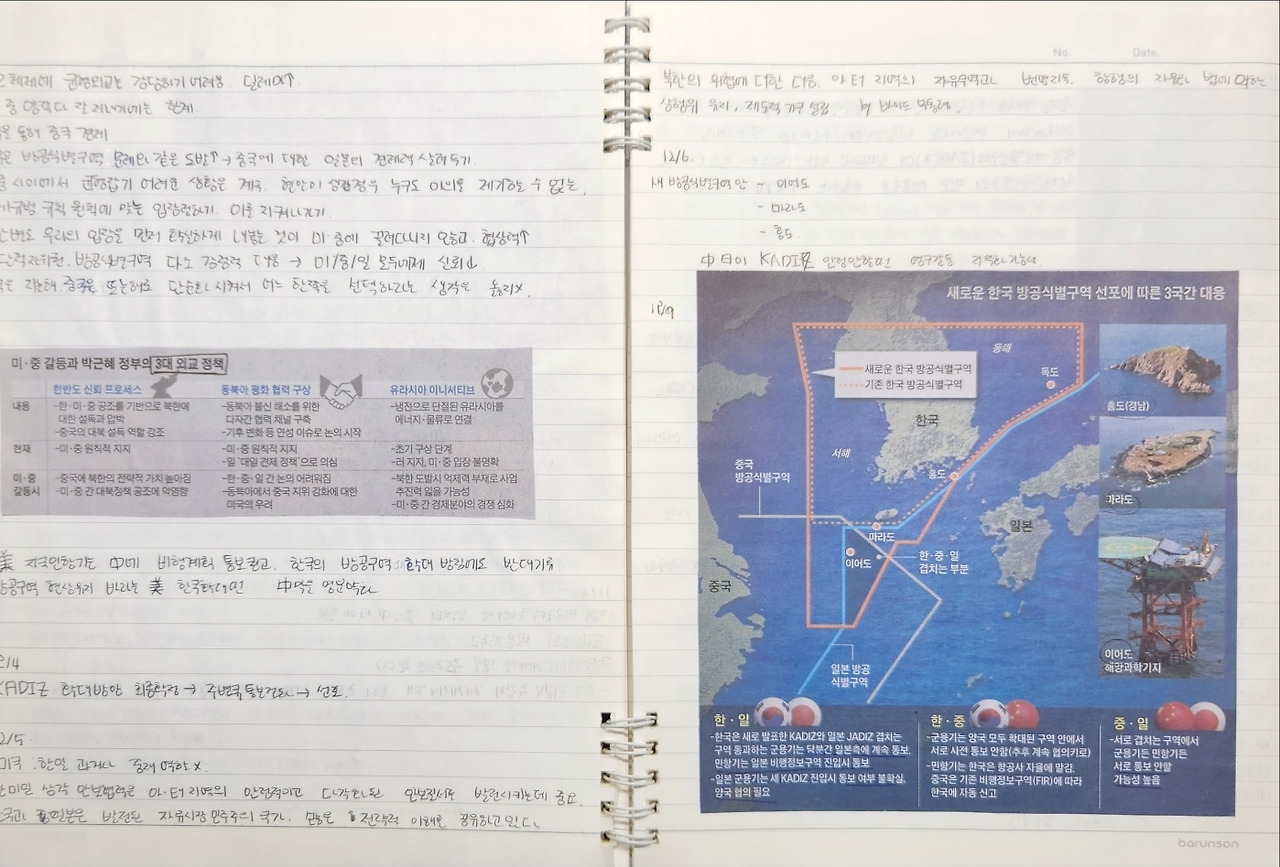 체제에 균형외교는 감당하기 어려운 딜레마↑
중 양쪽다 잘 지내기에는 한계.
을 통해 중국 견제
방공식별구역 문제와 같은 도발↑ → 중국에 대한 일본의 견제력 살려두기.
사이에서 균형잡기 어려운 상황은 계속. 현안이 생겼을때 누구도 이의를 제기할 수 없는.
규범 규칙 원칙에 맞는 입장정하기. 이를 지켜나가기.
우리의 입장을 먼저 확실하게 내놓는 것이 미·중에 끌려다니지 않고. 협상력↑
방공식별구역 다소 감정적 대응 → 미/중/일 모두에게 신뢰↓
단순화 시켜서 어느 한쪽을 선택하라는 생각은 옳지x.
미·중 갈등과 박근혜 정부의 3대 외교 정책
한반도 신뢰 프로세스 동북아 평화 협력 구상 유라시아 이니셔티브
내용
-한·미·중 공조를 기반으로 북한에 대한 설득과 압박
-중국의 대북 설득 역할 강조
-동북아 불신 해소를 위한 다자간 협력 채널 구축
-기후 변화 등 연성 이슈로 논의 시작
-냉전으로 단절된 유라시아를 에너지·물류로 연결
현재
-미·중 원칙적 지지
-미·중 원칙적 지지
-일 '대일 견제 정책'으로 의심
-초기 구상 단계
-러 지지, 미·중 입장 불명확
미·중 갈등시
-중국에 북한의 전략적 가치 높아짐
-미·중 간 대북정책 공조에 악영향
-한·중·일 간 논의 어려워짐
-동북아에서 중국 지위 강화에 대한 미국의 우려
-북한 도발시 억제력 부재로 사업 추진력 잃을 가능성
-미·중 간 경제분야의 경쟁 심화
美 자국민항기는 中에 비행계획 통보권고. 한국의 방공구역 확대 방침에도 반대기류
방공구역 현상유지 바라는 美 한국확대땐 中막을 명분약화
2/4
KADIZ 확대방안 최종확정 → 주변국통보절차 → 선포.
12/5.
미국. 한일 과거사 중재 역할x.
한미일 삼각 안보협력은 아·태지역의 안정적이고 다각화된 안보질서로 발전시키는데 중요.
한국과 일본은 발전된 자유시장 민주주의 국가. 많은 전략적 이해를 공유하고 있다.
No. Date.
북한의 위협에 대한 대응. 아·태 지역의 자유무역과 번영지속. 항행의 자유와 법에 의한
상황위 유지, 제도적 기구 설립 by 바이든 부통령.
12/6.
새 방공식별구역안 - 이어도
- 마라도
- 홍도
中日이 KADIZ 인정안할땐 영구갈등 지속화가능성
12/9
새로운 한국 방공식별구역 선포에 따른 3국간 대응
새로운 한국 방공식별구역
기존 한국 방공식별구역
동해
독도
한국
서해
홍도
중국 방공식별구역
마라도
이어도
한·중·일 겹치는 부분
일본
중국
일본 방공식별구역
홍도(경남)
마라도
이어도 해양과학기지
한·일
-한국은 새로 발표한 KADIZ와 일본 JADIZ 겹치는
구역 통과하는 군용기는 당분간 일본측에 계속 통보.
민항기는 일본 비행정보구역 진입시 통보
-일본 군용기는 새 KADIZ 진입시 통보 여부 불확실.
양국 협의 필요
한·중
-군용기는 양국 모두 확대된 구역 안에서
서로 사전 통보 안함(추후 계속 협의키로)
-민항기는 한국은 항공사 자율에 맡김.
중국은 기존 비행정보구역(FIR)에 따라
한국에 자동 신고
중·일
-서로 겹치는 구역에서
군용기든 민항기든
서로 통보 안할
가능성 높음
barunson